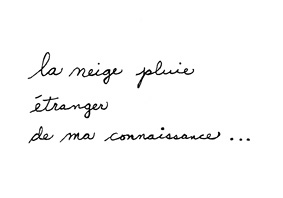 la neige pluie
étranger
de ma connaissance ...